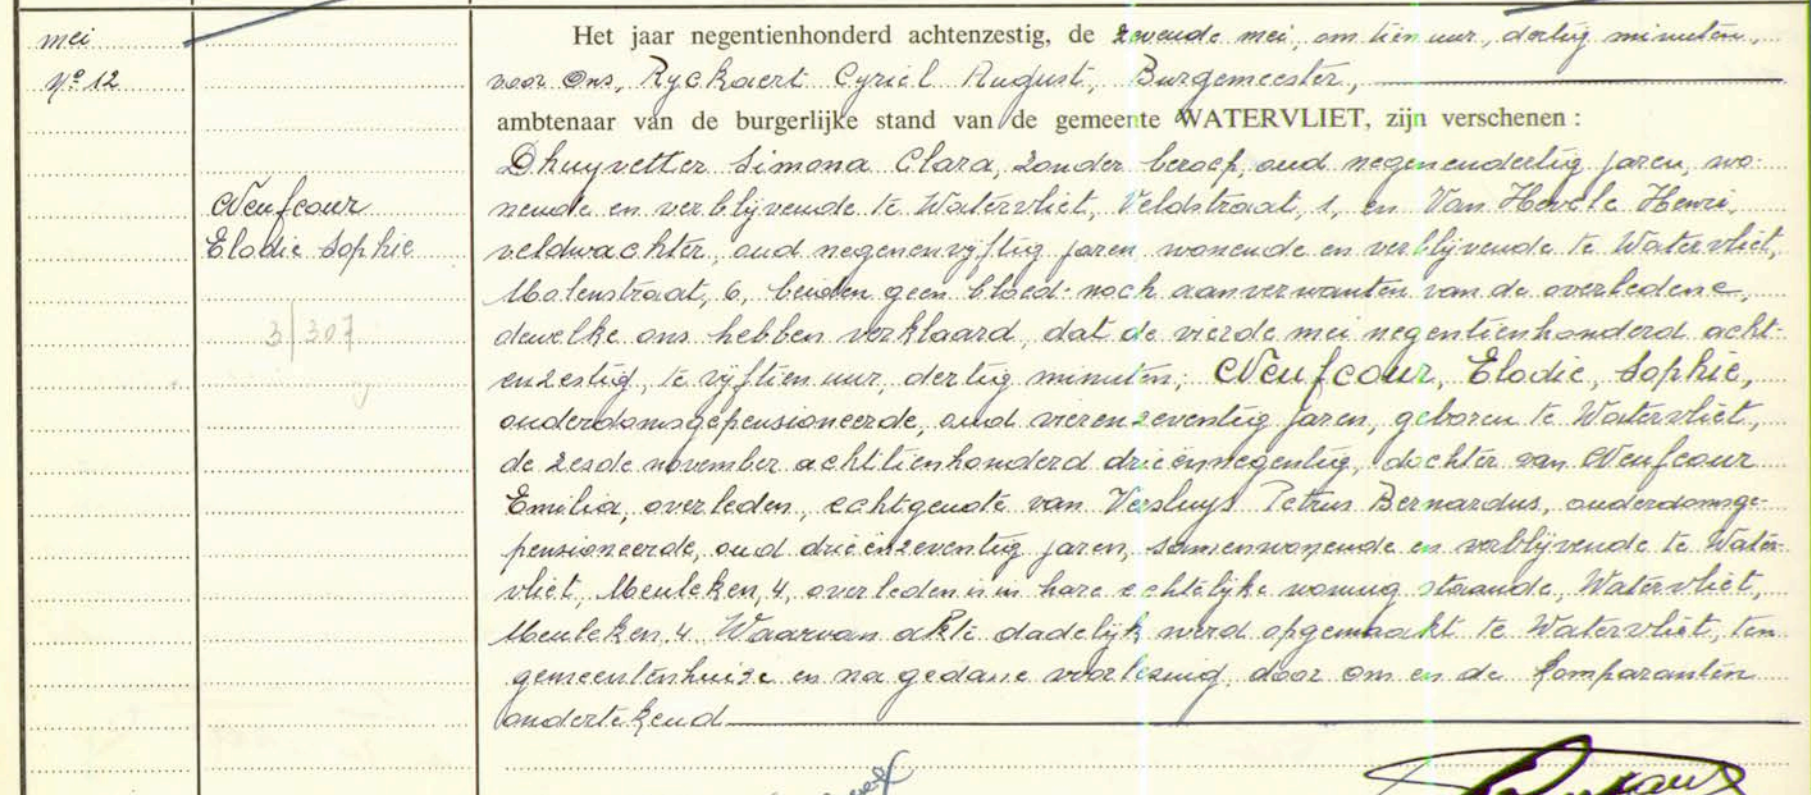 mei
Nº 12
Neufcour
Elodie Sophie
3/307
Het jaar negentienhonderd achtenzestig, de zevende mei, om tien uur, dertig minuten,
voor Ons, Ryckaert Cyriel August, Burgemeester,
ambtenaar van de burgerlijke stand van de gemeente WATERVLIET, zijn verschenen :
Dhuyvetter Simona Clara, zonder beroep, oud negenendertig jaren, wo-
nende en verblijvende te Watervliet, Veldstraat, 1, en Van Hevele Henri,
veldwachter, oud negenenvijftig jaren, wonende en verblijvende te Watervliet,
Molenstraat, 6, beiden geen bloed- noch aanverwanten van de overledene,
dewelke ons hebben verklaard, dat de vierde mei negentienhonderd acht-
enzestig, te vijftien uur, dertig minuten, Neufcour, Elodie, Sophie,
ouderdomsgepensioneerde, oud vierenzeventig jaren, geboren te Watervliet,
de zesde november achttienhonderd drieënnegentig, dochter van Neufcour
Emilia, overleden, echtgenote van Versluys Petrus Bernardus, ouderdomsge-
pensioneerde, oud drieënzeventig jaren, samenwonende en verblijvende te Water-
vliet, Meuleken, 4, overleden is in hare echtelijke woning staande, Watervliet,
Meuleken, 4. Waarvan akte dadelijk werd opgemaakt te Watervliet, ten
gemeentenhuize en na gedane voorlezing, door ons en de komparanten
ondertekend